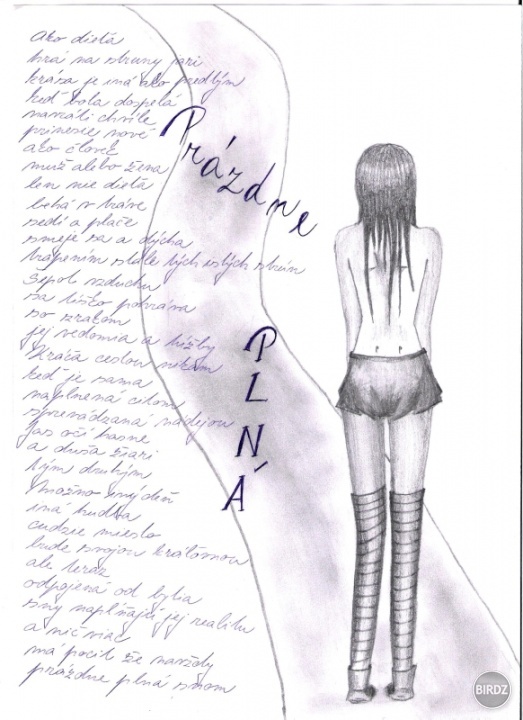 Ako dieťa
hrá na struny
krása je iná ako predtým
keď bola dospelá
navráti chvíle
prinesie nové
ako človek
muž alebo žena
len nie dieťa
behá v tráve
sedí a plače
smeje sa a dýcha
trápením stále tých istých strún
Šepot vzduchu
sa
so zrakom
jej vedomia a túžby
Kráča cestou nikam
keď je sama
naplnená citom
sprevádzaná nádejou
Jas očí hasne
a duša žiari
tým druhým
Možno iný deň
iná hudba
cudzie miesto
bude svojou krátšinou
ale teraz
odpojená od bytia
sny napĺňajú jej realitu
a nič viac
má pocit že navždy
prázdne plná snom
Prázdne
PLNÁ
BIRDZ